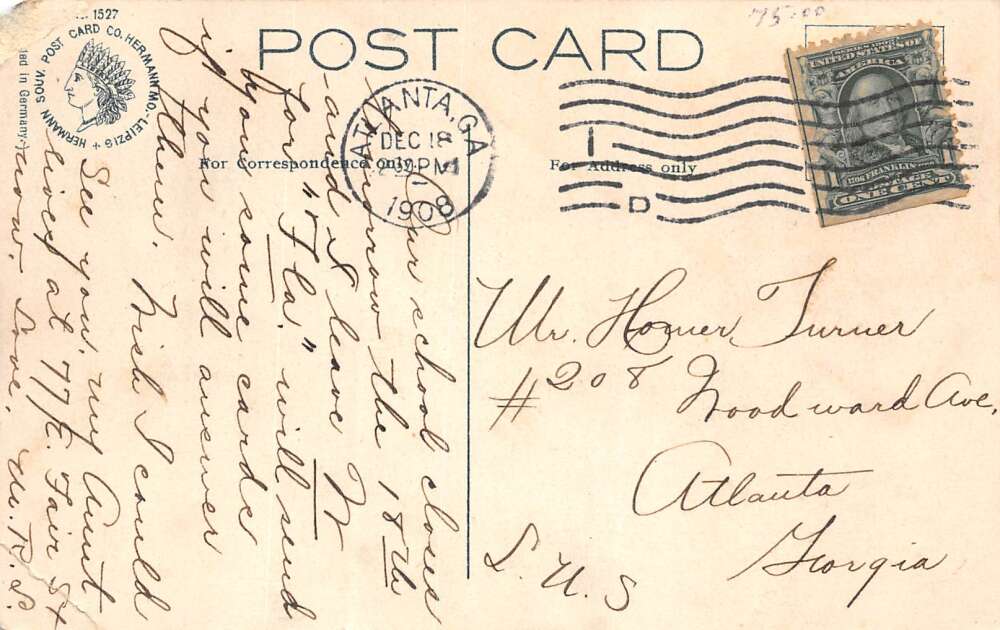 1527
HERMANN SOUV. POST CARD CO. HERMANN MO.-LEIPZIG +
ted in Germany.)
POST CARD
75.00
For Correspondence only.
For Address only
ATLANTA, GA
DEC 18
PM
1908
1
D
UNITED STATES OF
AMERICA
FRANKLIN
POSTAGE
ONE CENT
Our school close
tomorrow the 18th
and I leave
for "Fla." will send
you some cards
if you will answer
them. Wish I could
See you. my Aunt
lives at 77 E. Fair St
now. Love. M.R.S.
Mr. Homer Turner
#208 Woodward Ave,
Atlanta
Georgia
U.S